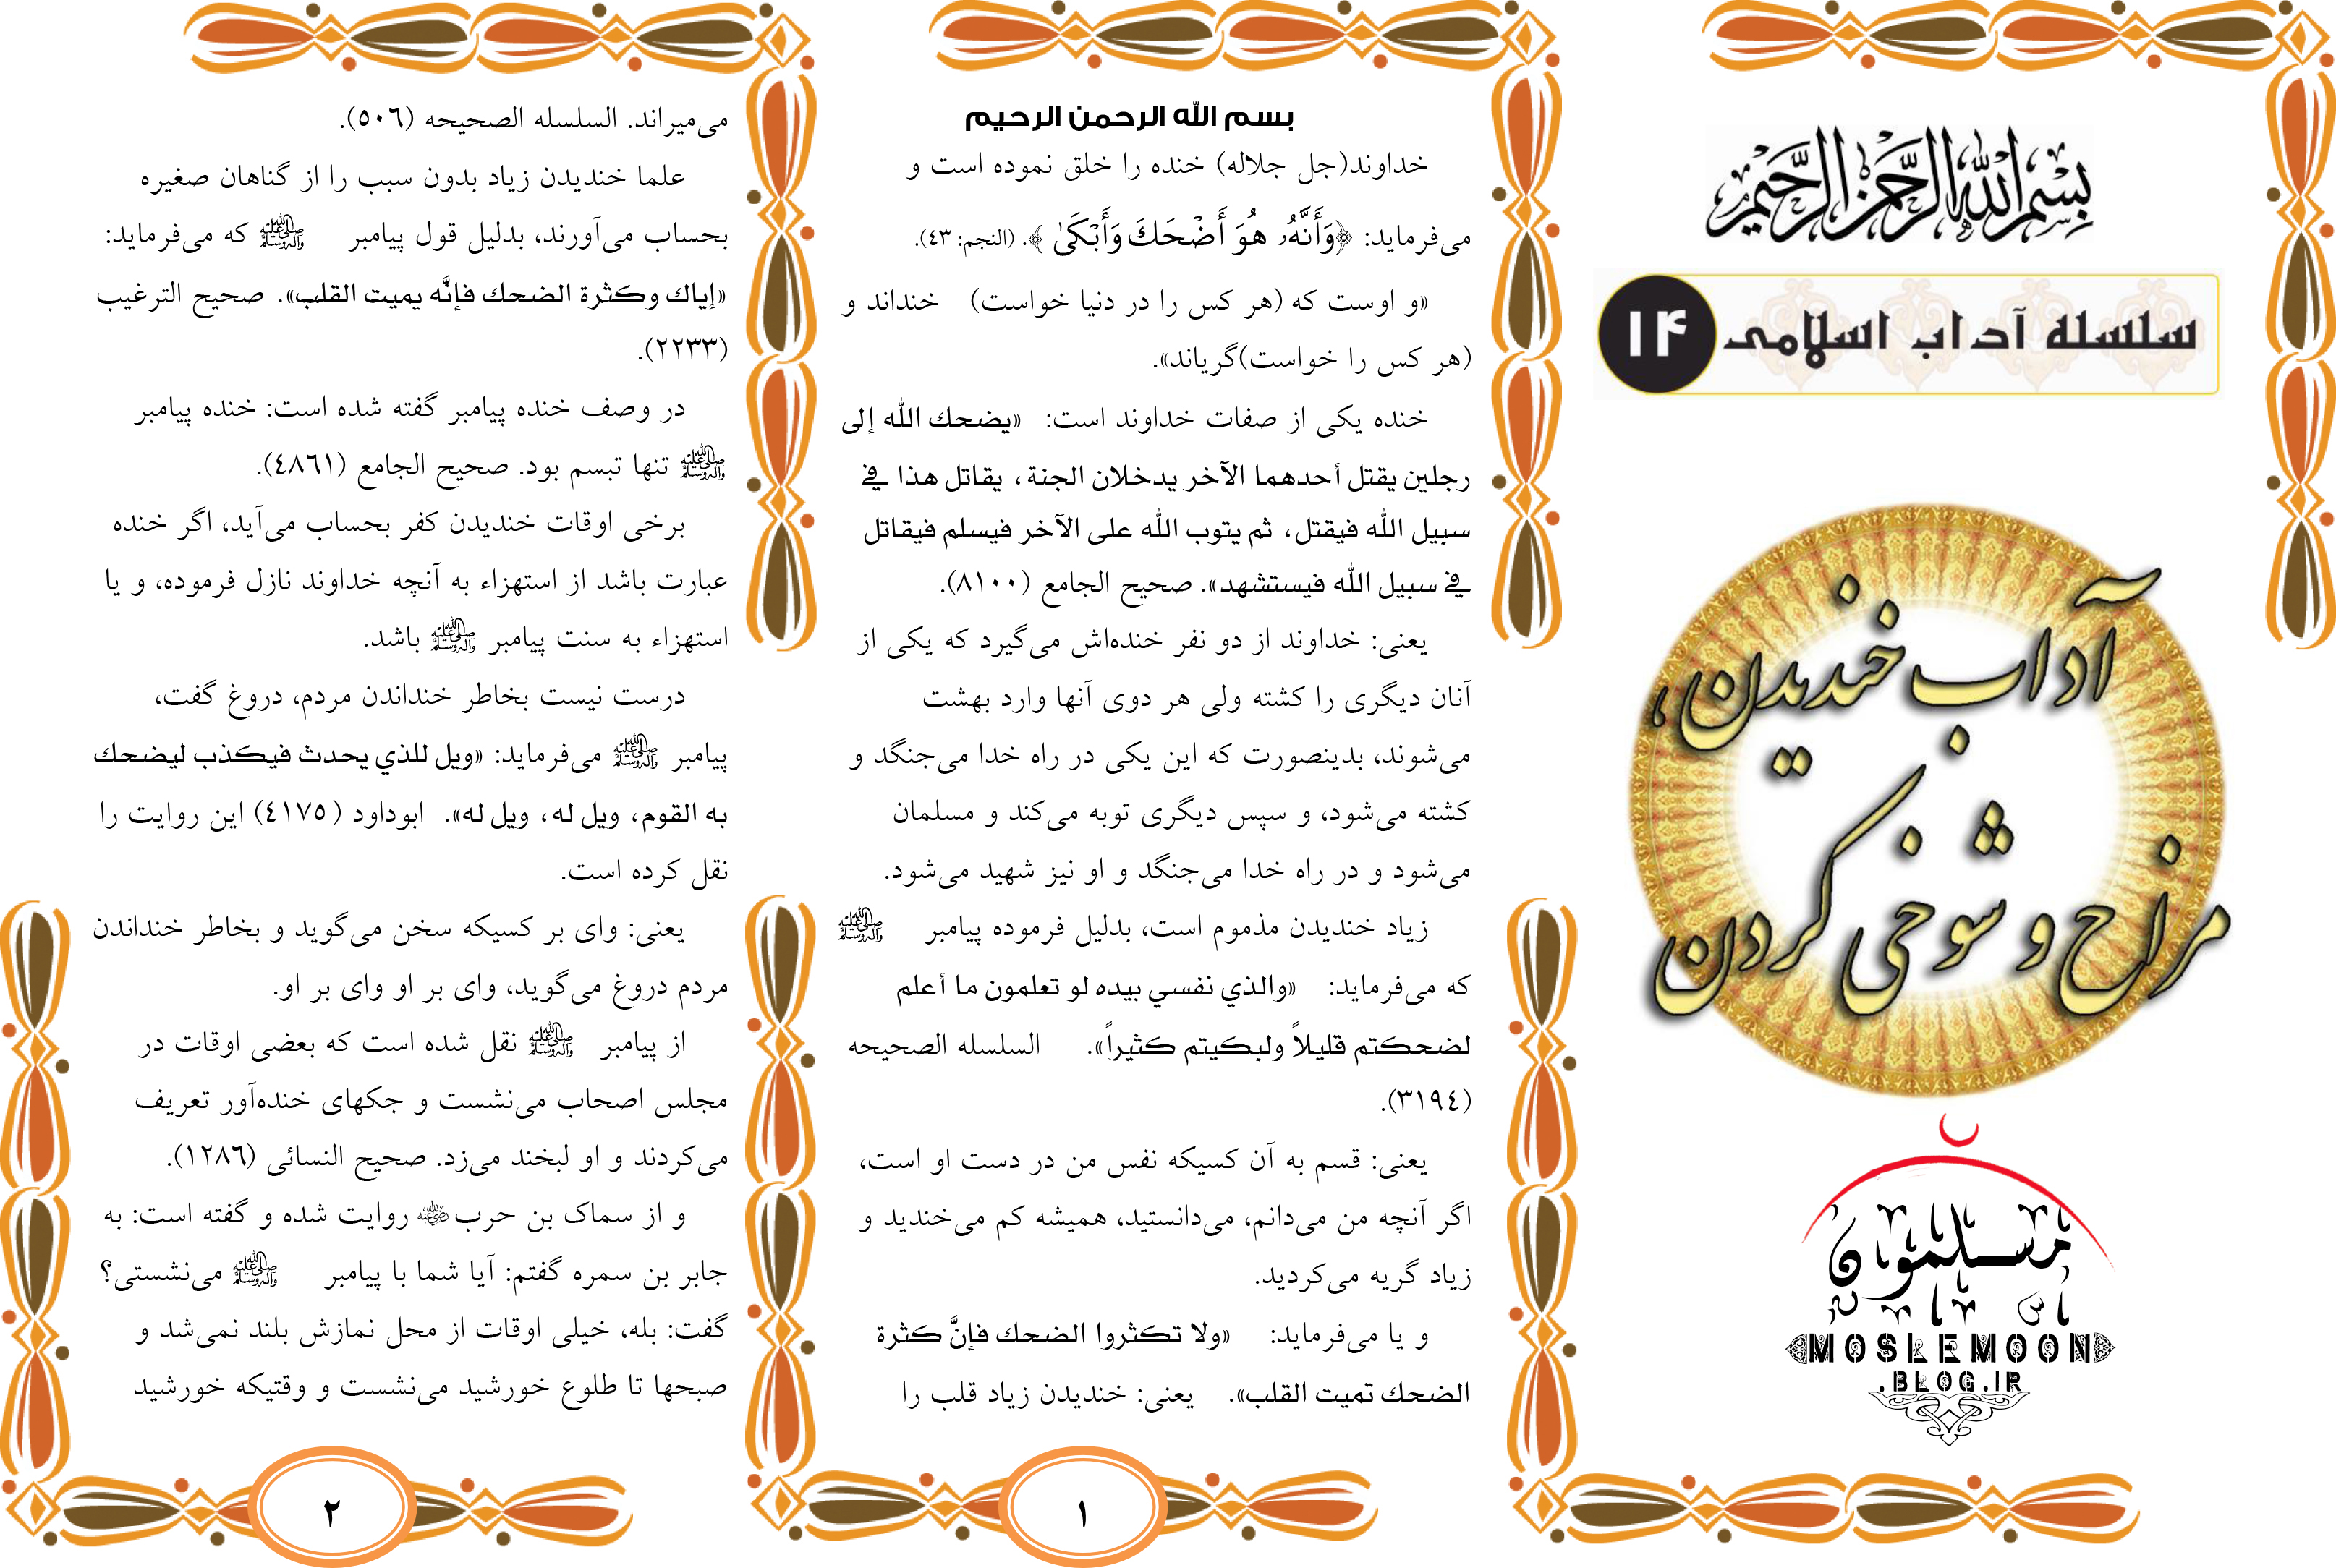 بِسْمِ اللهِ الرَّحْمنِ الرَّحِيْمِ
سلسله آداب اسلامی ۱۴
آداب خندیدن،
مزاح و شوخی کردن
مسلمون
MOSLEMOON
.BLOG.IR
بسم الله الرحمن الرحیم
خداوند(جل جلاله) خنده را خلق نموده است و
می‌فرماید: ﴿وَأَنَّهُۥ هُوَ أَضۡحَكَ وَأَبۡكَىٰ﴾. (النجم: ٤٣).
«و اوست که (هر کس را در دنیا خواست) خنداند و
(هر کس را خواست)گریاند».
خنده یکی از صفات خداوند است: «يضحك الله إلى
رجلين يقتل أحدهما الآخر يدخلان الجنة، يقاتل هذا في
سبيل الله فيقتل، ثم يتوب الله على الآخر فيسلم فيقاتل
في سبيل الله فيستشهد». صحیح الجامع (٨١٠٠).
یعنی: خداوند از دو نفر خنده‌اش می‌گیرد که یکی از
آنان دیگری را کشته ولی هر دوی آنها وارد بهشت
می‌شوند، بدینصورت که این یکی در راه خدا می‌جنگد و
کشته می‌شود، و سپس دیگری توبه می‌کند و مسلمان
می‌شود و در راه خدا می‌جنگد و او نیز شهید می‌شود.
زیاد خندیدن مذموم است، بدلیل فرموده پیامبر ﷺ
که می‌فرماید: «والذي نفسي بيده لو تعلمون ما أعلم
لضحكتم قليلاً ولبكيتم كثيراً». السلسله الصحیحه
(٣١٩٤).
یعنی: قسم به آن کسیکه نفس من در دست او است،
اگر آنچه من می‌دانم، می‌دانستید، همیشه کم می‌خندید و
زیاد گریه می‌کردید.
و یا می‌فرماید: «ولا تكثروا الضحك فإنَّ كثرة
الضحك تميت القلب». یعنی: خندیدن زیاد قلب را
١
می‌میراند. السلسله الصحیحه (٥٠٦).
علما خندیدن زیاد بدون سبب را از گناهان صغیره
بحساب می‌آورند، بدلیل قول پیامبر ﷺ که می‌فرماید:
«إياك وكثرة الضحك فإنَّه يميت القلب». صحیح الترغیب
(٢٢٣٣).
در وصف خنده پیامبر گفته شده است: خنده پیامبر
ﷺ تنها تبسم بود. صحیح الجامع (٤٨٦١).
برخی اوقات خندیدن کفر بحساب می‌آید، اگر خنده
عبارت باشد از استهزاء به آنچه خداوند نازل فرموده، و یا
استهزاء به سنت پیامبر ﷺ باشد.
درست نیست بخاطر خنداندن مردم، دروغ گفت،
پیامبر ﷺ می‌فرماید: «ويل للذي يحدث فيكذب ليضحك
به القوم، ويل له، ويل له». ابوداود (٤١٧٥) این روایت را
نقل کرده است.
یعنی: وای بر کسیکه سخن می‌گوید و بخاطر خنداندن
مردم دروغ می‌گوید، وای بر او وای بر او.
از پیامبر ﷺ نقل شده است که بعضی اوقات در
مجلس اصحاب می‌نشست و جکهای خنده‌آور تعریف
می‌کردند و او لبخند می‌زد. صحیح النسائی (١٢٨٦).
و از سماک بن حرب رضی الله عنه روایت شده و گفته است: به
جابر بن سمره گفتم: آیا شما با پیامبر ﷺ می‌نشستی؟
گفت: بله، خیلی اوقات از محل نمازش بلند نمی‌شد و
صبحها تا طلوع خورشید می‌نشست و وقتیکه خورشید
٢